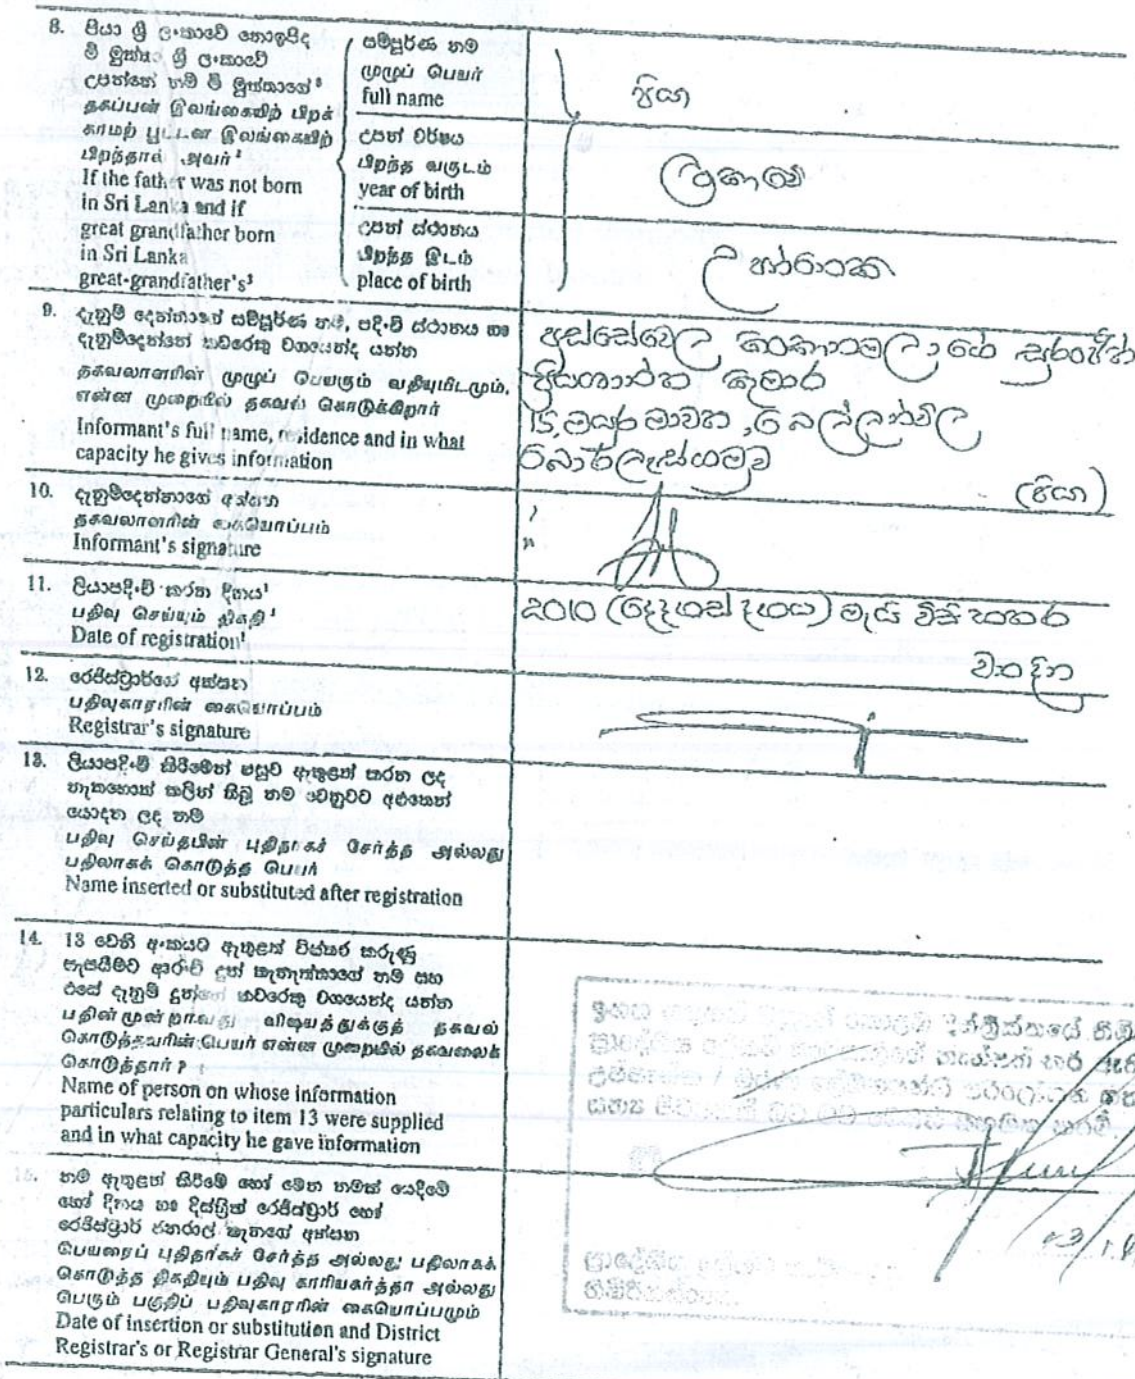 8. පියා ශ්‍රී ලංකාවේ නොඉපිද
මී මුත්තා ශ්‍රී ලංකාවේ
උපන්නේ නම් මී මුත්තාගේ³
தகப்பன் இலங்கையிற் பிறக்
காமற் பூட்டன் இலங்கையிற்
பிறந்தால் அவர்³
If the father was not born
in Sri Lanka and if
great grandfather born
in Sri Lanka
great-grandfather's³
සම්පූර්ණ නම
முழுப் பெயர்
full name
පියා
උපන් වර්ෂය
பிறந்த வருடம்
year of birth
ලංකාවේ
උපන් ස්ථානය
பிறந்த இடம்
place of birth
9. දැනුම් දෙන්නාගේ සම්පූර්ණ නම, පදිංචි ස්ථානය හා
දැනුම්දෙන්නේ කවරෙකු වශයෙන්ද යන්න
தகவலாளரின் முழுப் பெயரும் வதியுமிடமும்,
என்ன முறையில் தகவல் கொடுக்கிறார்
Informant's full name, residence and in what
capacity he gives information
පුස්සේවෙල
කුමාර
15, මයුර මාවත, බෙල්ලන්විල
බොරලැස්ගමුව
(පියා)
10. දැනුම්දෙන්නාගේ අත්සන
தகவலாளரின் கையொப்பம்
Informant's signature
11. ලියාපදිංචි කරන දිනය¹
பதிவு செய்யும் திகதி¹
Date of registration¹
2010 (දෙදහස් දහය) මැයි විසි හතර
වන දින
12. රෙජිස්ට්‍රාර්ගේ අත්සන
பதிவுகாரரின் கையொப்பம்
Registrar's signature
13. ලියාපදිංචි කිරීමෙන් පසුව ඇතුළත් කරන ලද
නැතහොත් කලින් තිබූ නම වෙනුවට අළුතෙන්
යොදන ලද නම
பதிவு செய்தபின் புதிதாகச் சேர்த்த அல்லது
பதிலாகக் கொடுத்த பெயர்
Name inserted or substituted after registration
14. 13 වෙනි අංකයට ඇතුළත් විස්තර කරුණු
සැපයීමට ආරංචි දුන් තැනැත්තාගේ නම සහ
එසේ දැනුම් දුන්නේ කවරෙකු වශයෙන්ද යන්න
பதின்மூன்றாவது விஷயத்துக்குத் தகவல்
கொடுத்தவரின் பெயர் என்ன முறையில் தகவலைக்
கொடுத்தார்?
Name of person on whose information
particulars relating to item 13 were supplied
and in what capacity he gave information
15. නම ඇතුළත් කිරීමේ හෝ වෙන නමක් යෙදීමේ
හෝ දිනය හා දිස්ත්‍රික් රෙජිස්ට්‍රාර් හෝ
රෙජිස්ට්‍රාර් ජනරාල් තැනගේ අත්සන
பெயரைப் புதிதாகச் சேர்த்த அல்லது பதிலாகக்
கொடுத்த திகதியும் பதிவு காரியகர்த்தா அல்லது
பெரும் பகுதிப் பதிவுகாரரின் கையொப்பமும்
Date of insertion or substitution and District
Registrar's or Registrar General's signature